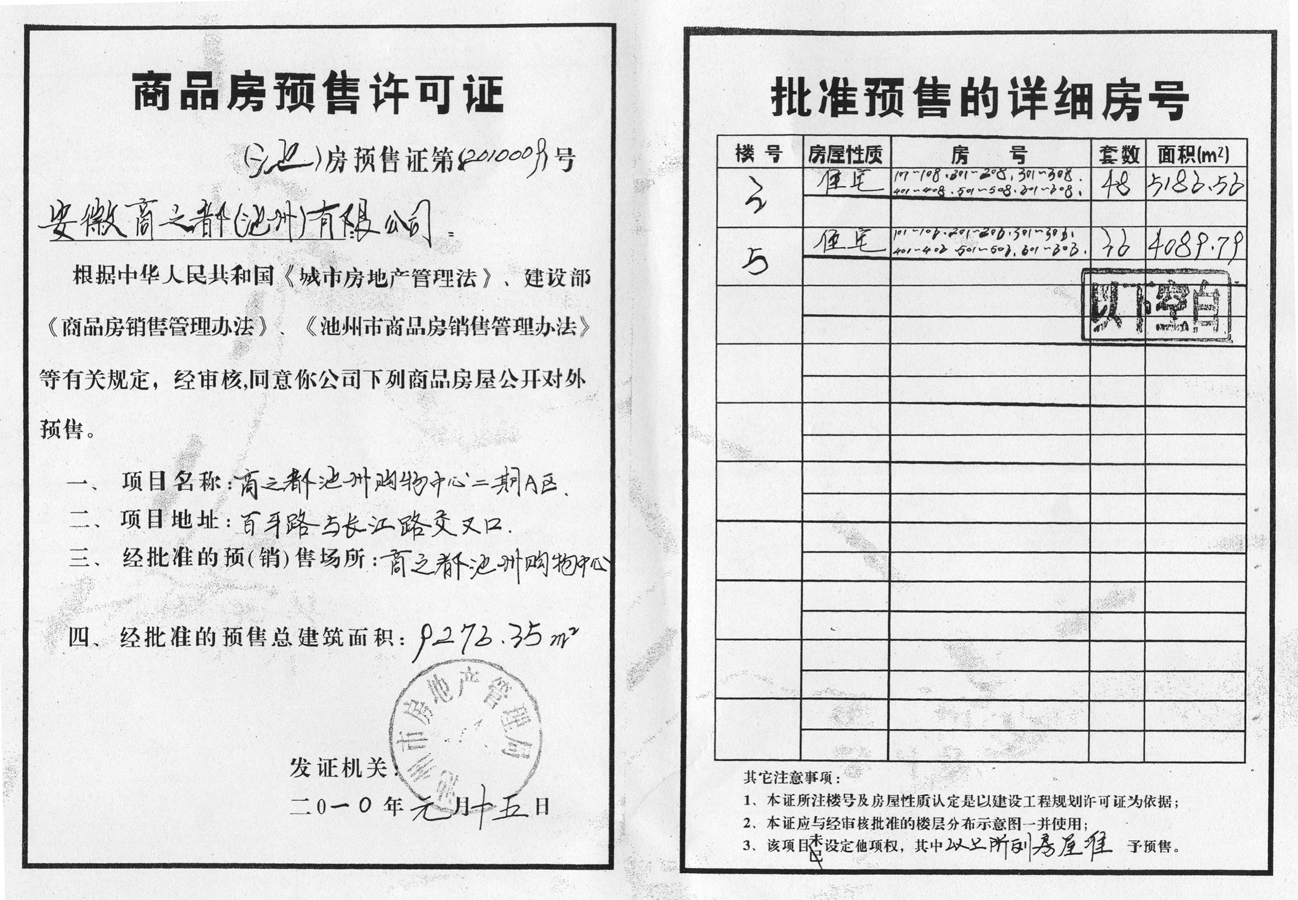 商品房预售许可证
(池)房预售证第(2010009)号
安徽商之都(池州)有限公司：
根据中华人民共和国《城市房地产管理法》、建设部
《商品房销售管理办法》、《池州市商品房销售管理办法》
等有关规定，经审核,同意你公司下列商品房屋公开对外
预售。
一、项目名称:商之都池州购物中心二期A区.
二、项目地址:百牙路与长江路交叉口.
三、经批准的预(销)售场所:商之都池州购物中心
四、经批准的预售总建筑面积:9273.35m²
池州市房地产管理局
发证机关:
二〇一〇年元月十五日
批准预售的详细房号
楼号 房屋性质 房号 套数 面积(m²)
3 住宅 101~108.201~208.301~308. 48 5183.56
401~408.501~508.601~608.
5 住宅 101~106.201~206.301~306. 36 4089.79
401~406.501~506.601~606.
以下空白
其它注意事项:
1、本证所注楼号及房屋性质认定是以建设工程规划许可证为依据;
2、本证应与经审核批准的楼层分布示意图一并使用;
3、该项目未已设定他项权，其中以上所列房屋准予预售。